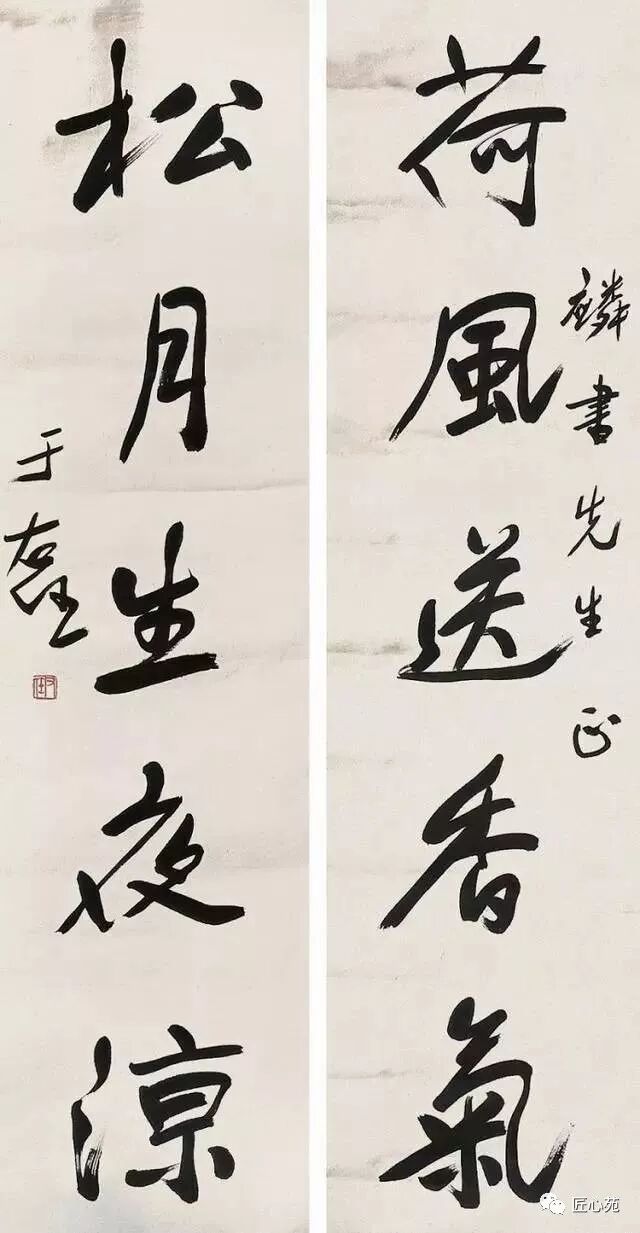 麟書先生正
荷風送香氣
松月生夜涼
于右任
匠心苑